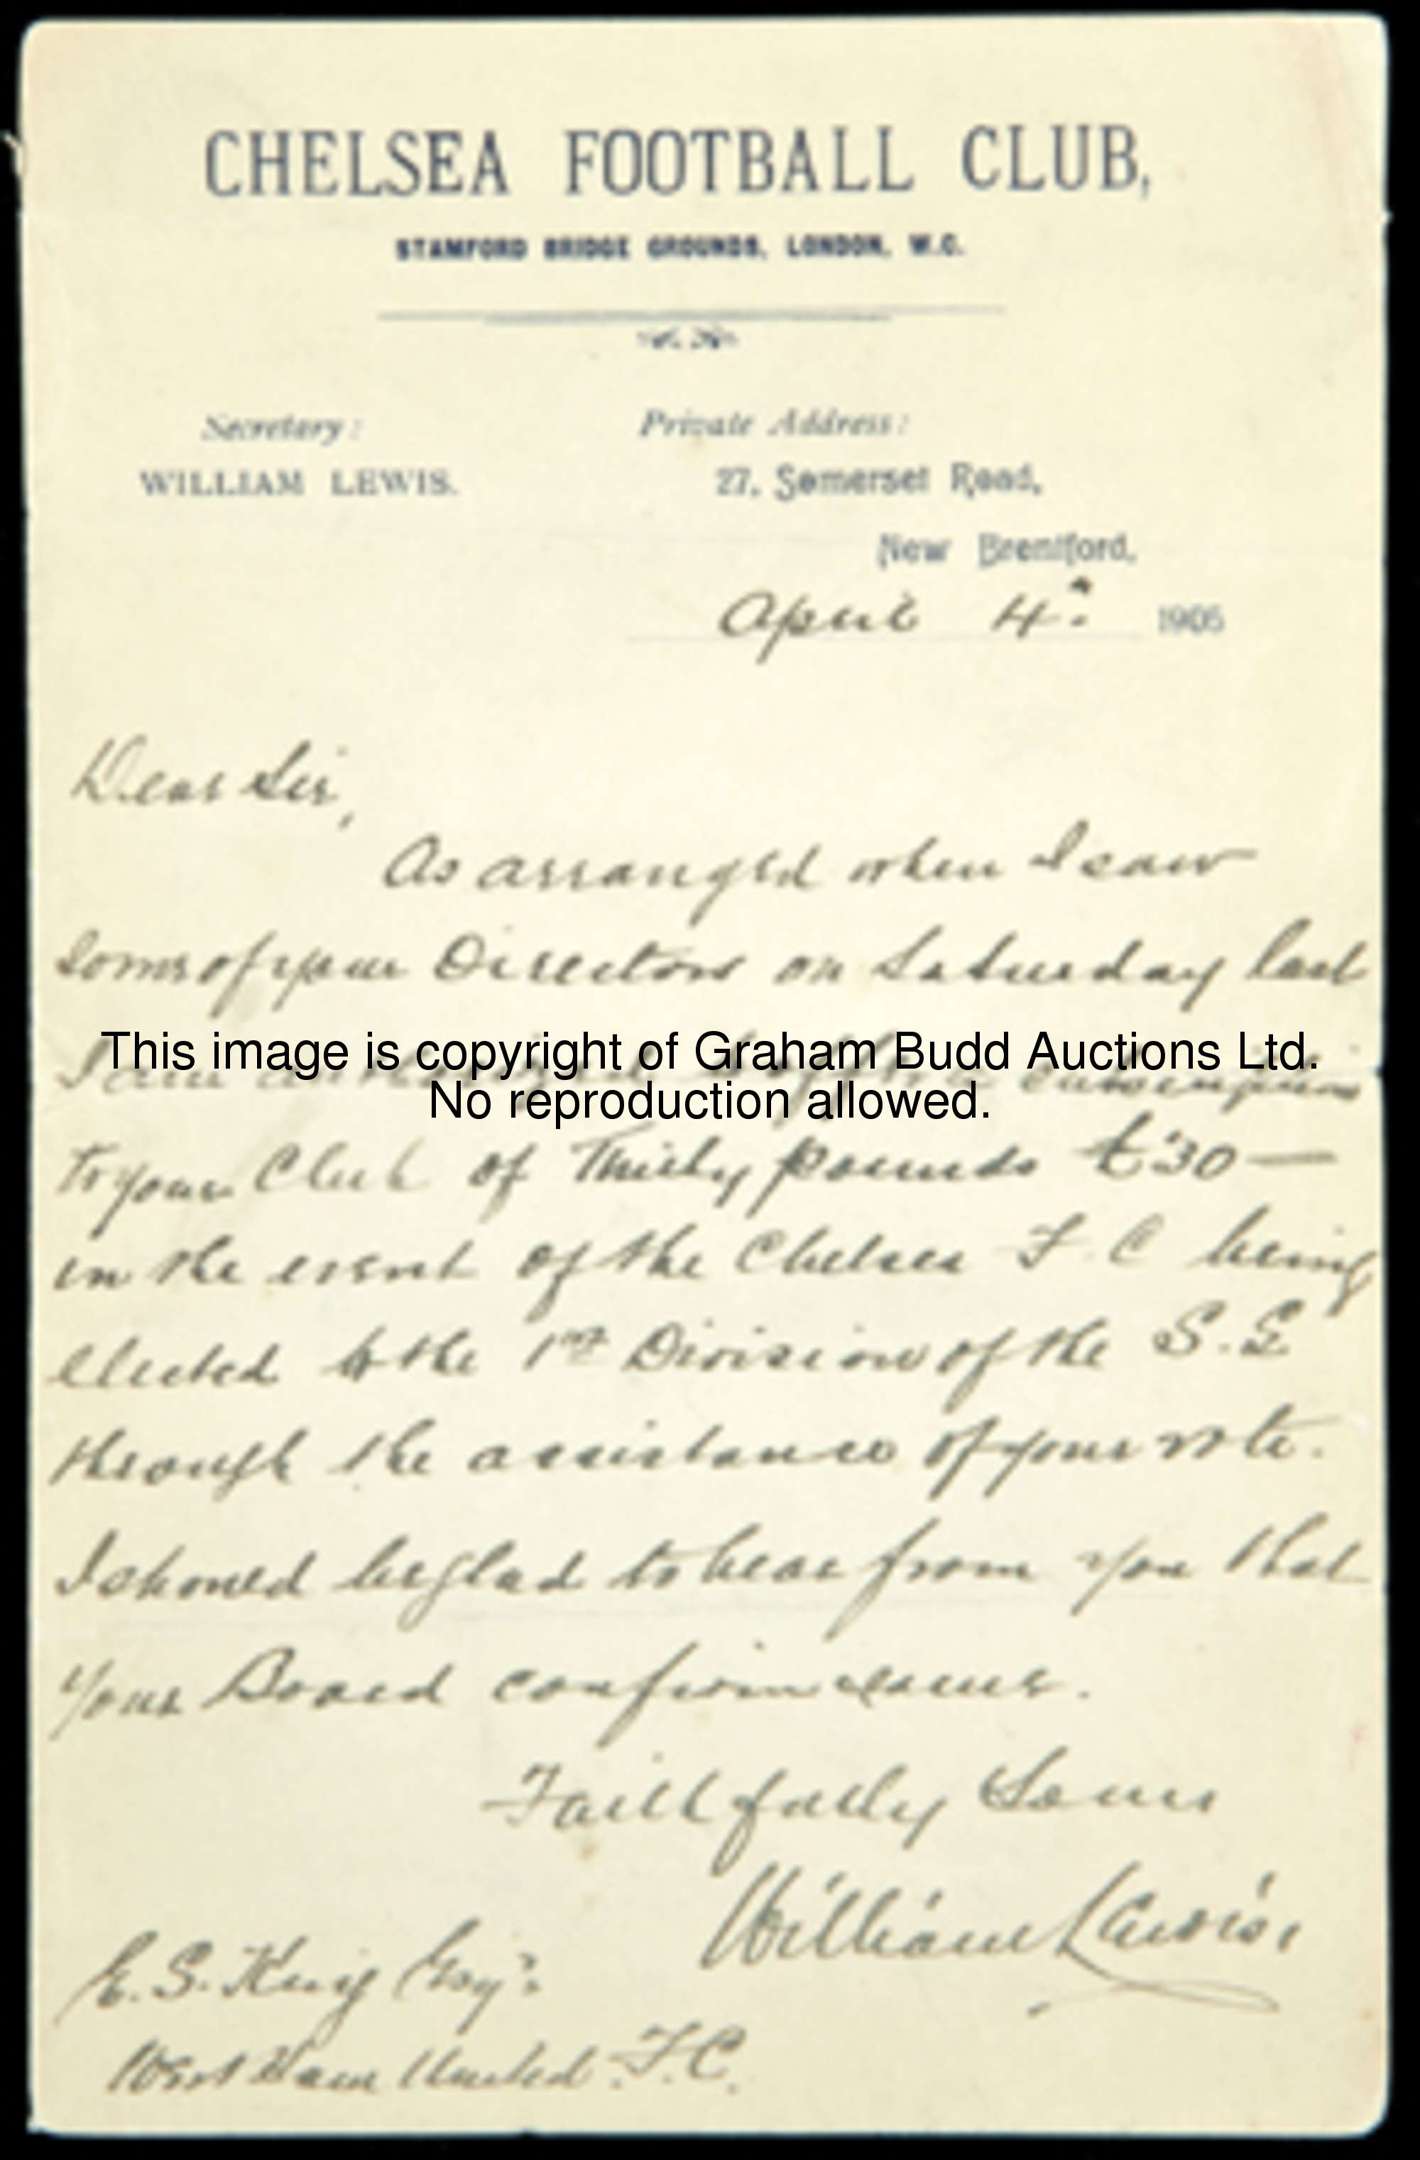 CHELSEA FOOTBALL CLUB,
STAMFORD BRIDGE GROUNDS, LONDON, W.C.
Secretary: Private Address:
WILLIAM LEWIS. 27, Somerset Road,
New Brentford,
April 4th 1905
Dear Sir,
As arranged when I saw
some of your Directors on Saturday last
This image is copyright of Graham Budd Auctions Ltd.
I am
No reproduction allowed.
to your Club of Thirty pounds £30 —
in the event of the Chelsea F.C being
elected to the 1st Division of the S.L
through the assistance of your vote.
I should be glad to hear from you that
your Board confirm same.
Faithfully Yours
William Lewis.
E. S. King Esqr.
West Ham United F.C.